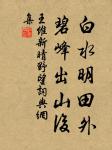 白水明田外
碧峰出山後
王維新晴野望詞典網
集